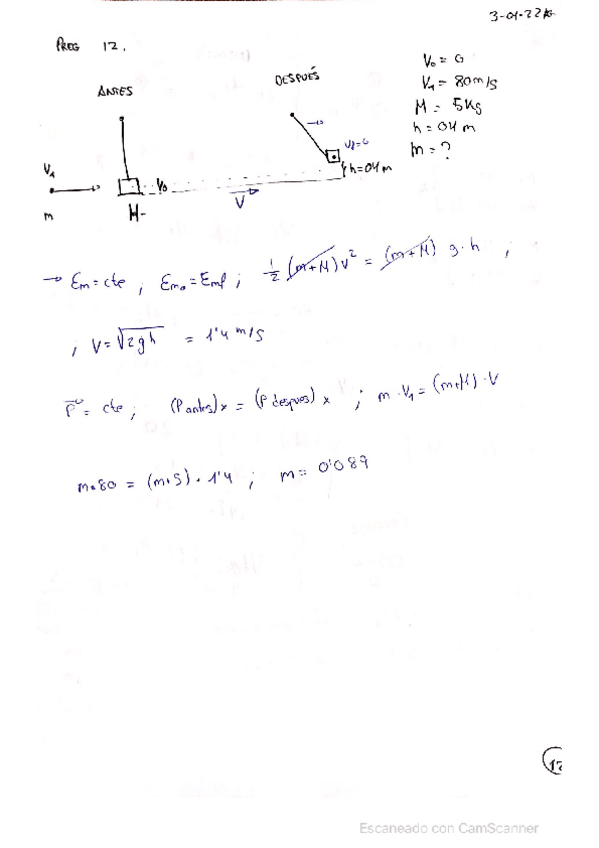 3-01-22
PREG 12.
ANTES
DESPUÉS
V₀ = 0
V₁ = 80 m/s
M = 5 Kg
h = 04 m
m = ?
V₁
m
V₀
M-
V
Vf=0
h=04 m
→ Em = cte ; Em₀ = Emf ; 1/2 (m+M) v² = (m+M) g·h ;
; V = √2gh = 1'4 m/s
P = cte ; (P antes)x = (P despues) x ; m·V₁ = (m+M)·V
m·80 = (m+5)·1'4 ; m = 0'089
12
Escaneado con CamScanner